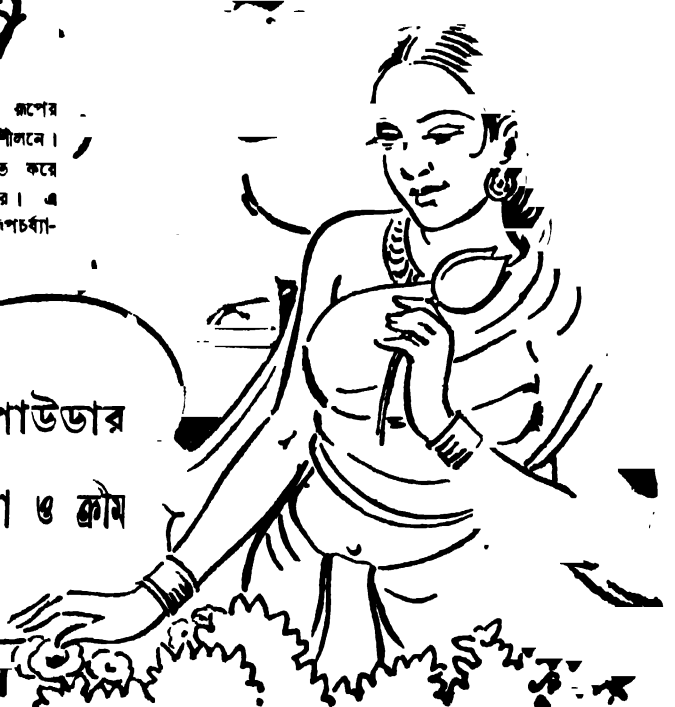 রূপের
শীলনে।
করে
র। এ
পচর্য্যা-
পাউডার
ও ক্রীম